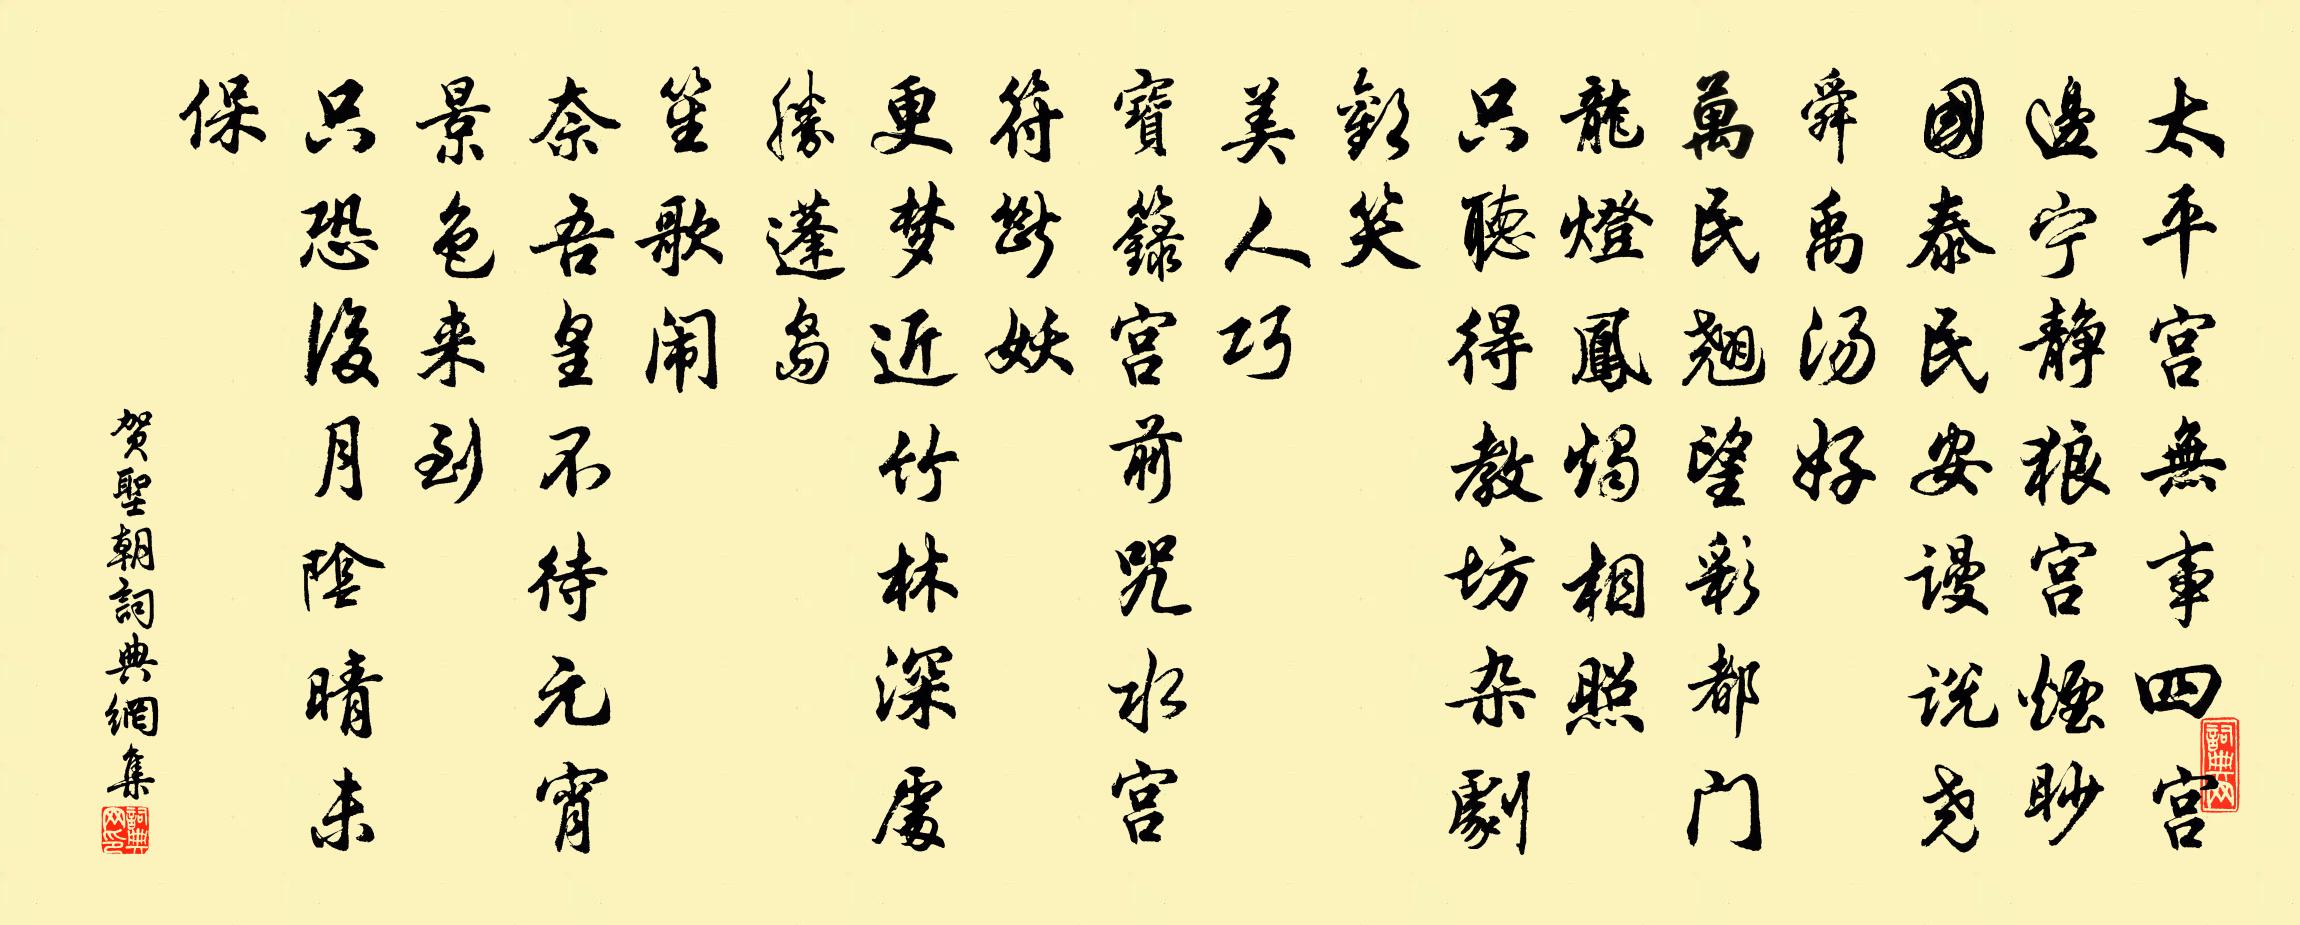 太平宫無事四宫
邊宁静狼宫煙眇
國泰民安谩说尧
舜禹汤好
萬民翘望彩都门
龍燈鳳燭相照
只聽得教坊杂劇
歡笑
美人巧
寶籙宫前咒水宫
符斷妖
更梦近竹林深處
勝蓬岛
笙歌闹
奈吾皇不待元宵
景色来到
只恐後月陰晴未
保
贺聖朝詞典網集
詞典网
詞典网印